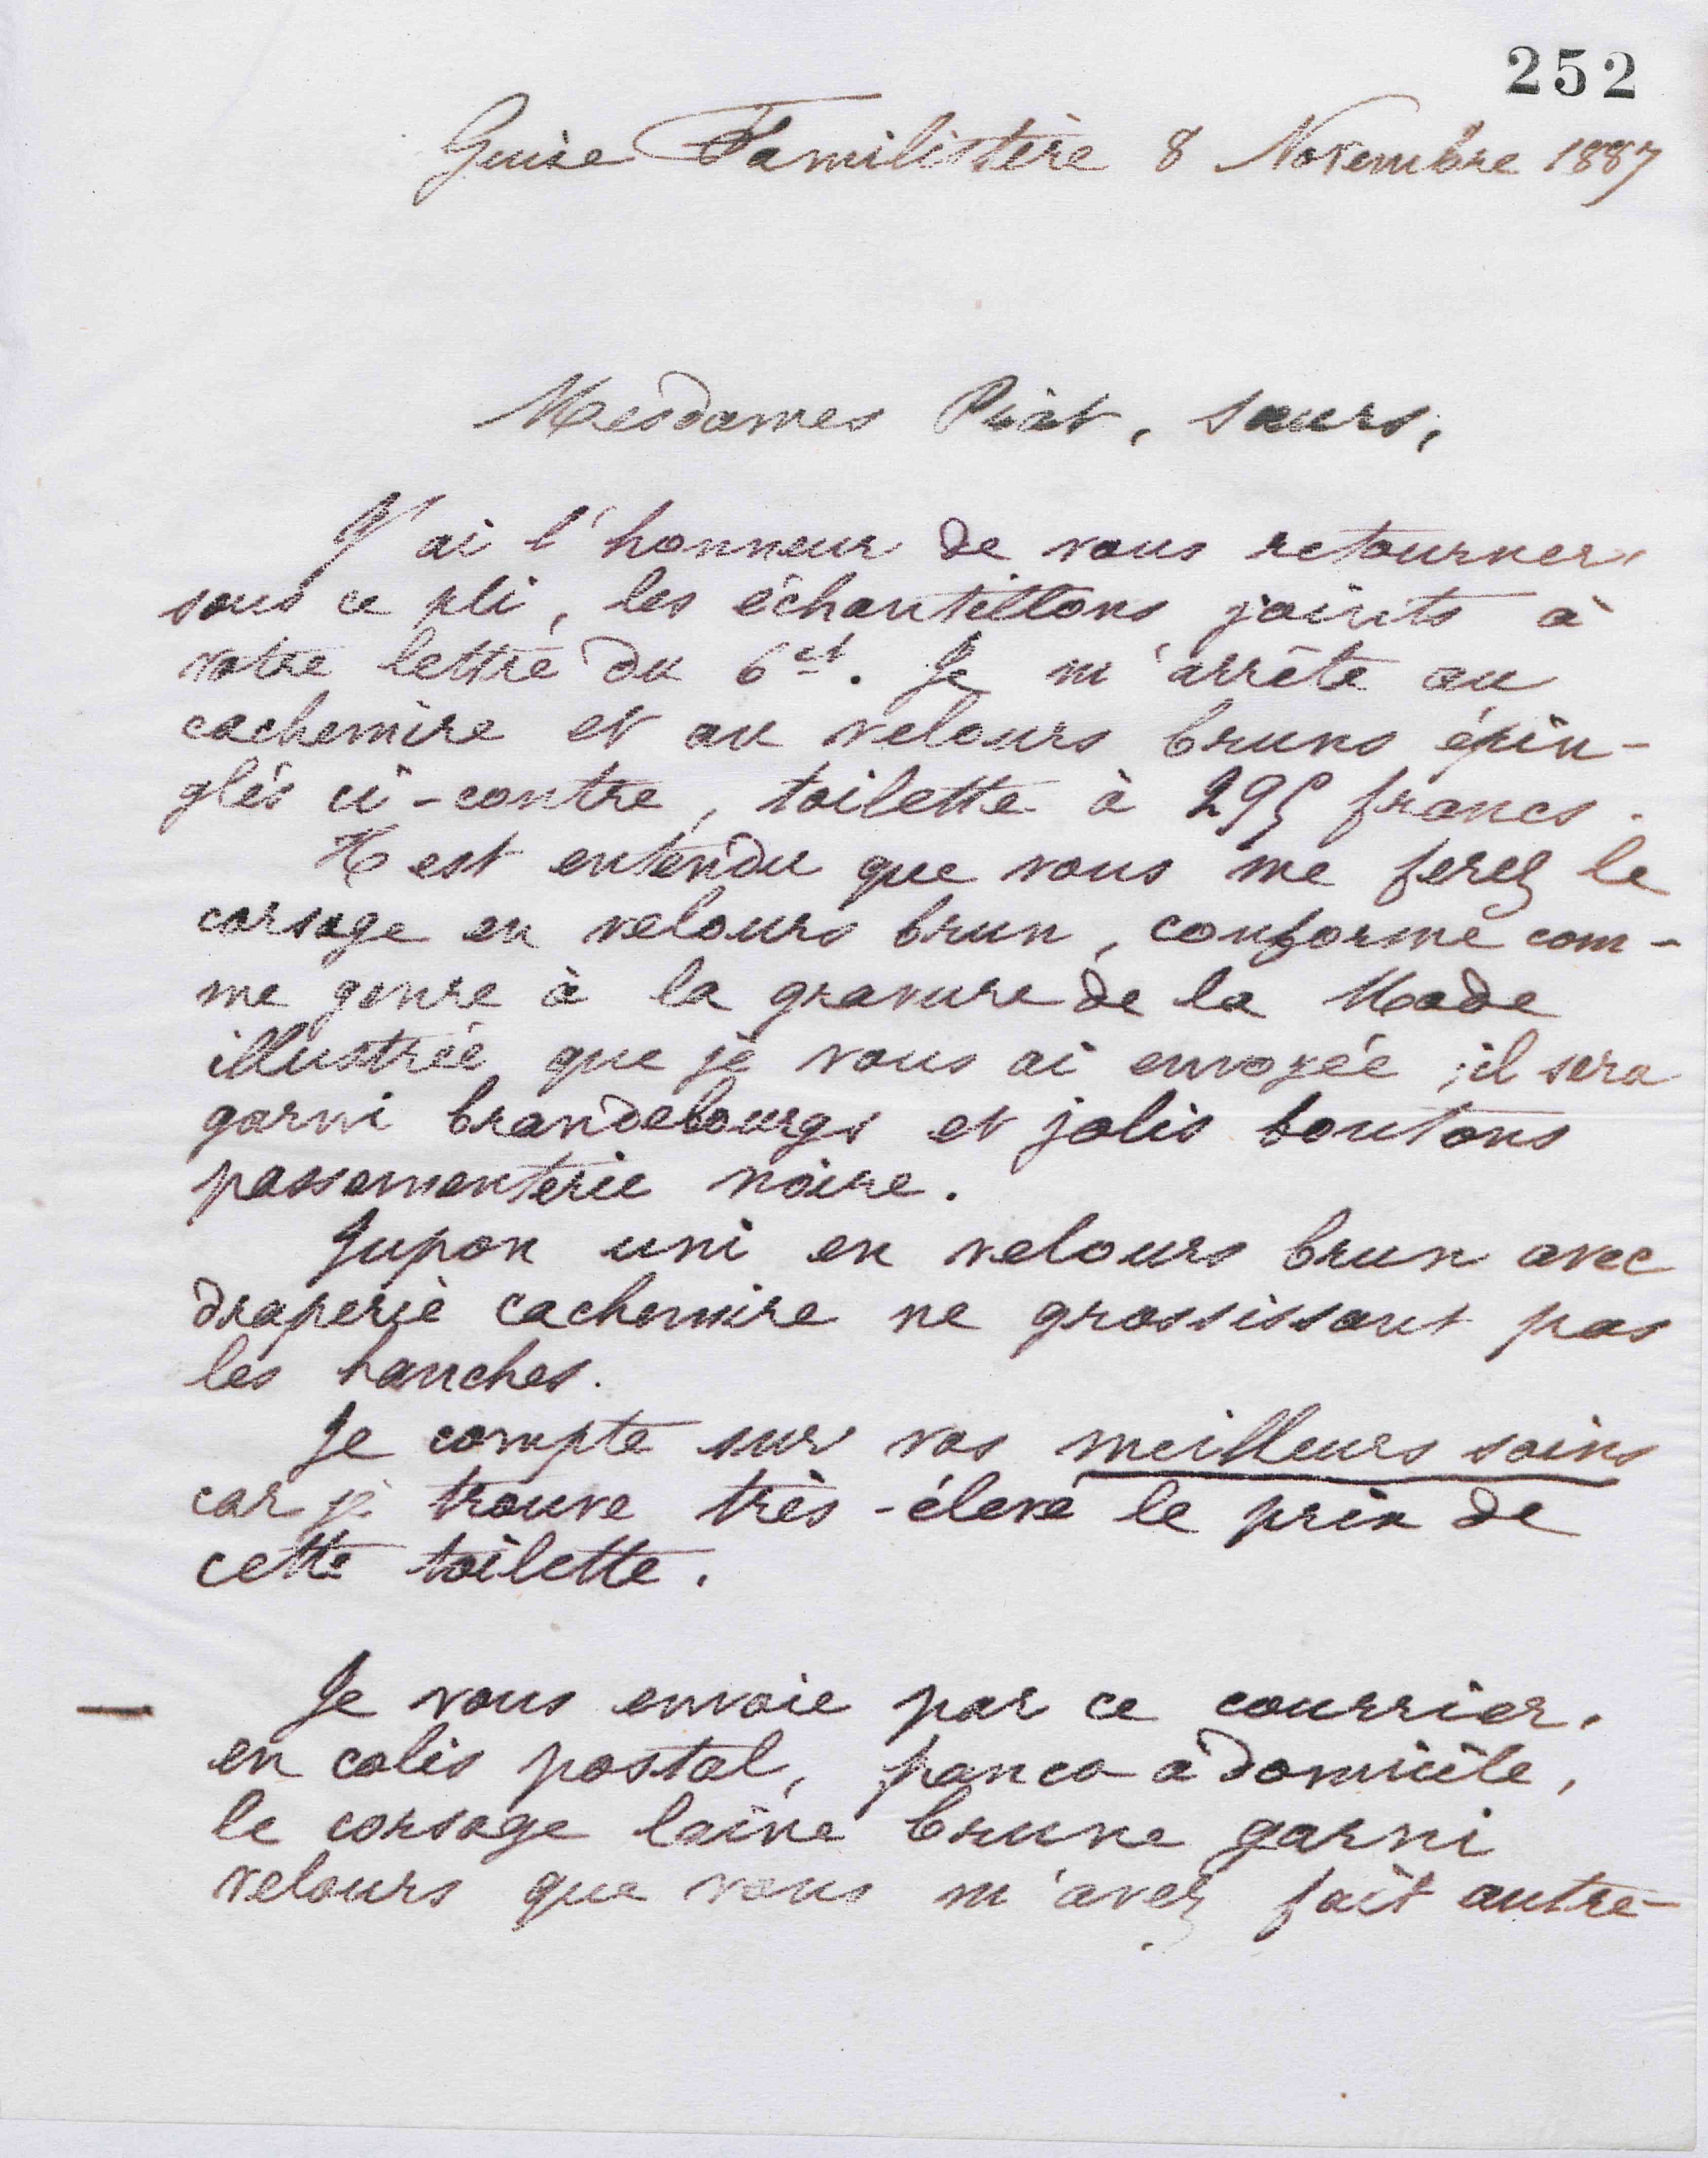 252
Guise Familistère 8 Novembre 1887
Mesdames Piat, sœurs,
J'ai l'honneur de vous retourner,
sous ce pli, les échantillons joints à
votre lettre du 6 ct. Je m'arrête au
cachemire et au velours bruns épin-
glés ci-contre, toilette à 295 francs.
Il est entendu que vous me ferez le
corsage en velours brun, conforme com-
me genre à la gravure de la Mode
illustrée que je vous ai envoyée ; il sera
garni brandebourgs et jolis boutons
passementerie noire.
Jupon uni en velours brun avec
draperie cachemire ne grossissant pas
les hanches.
Je compte sur vos meilleurs soins
car je trouve très-élevé le prix de
cette toilette.
Je vous envoie par ce courrier,
en colis postal, franco à domicile,
le corsage laine brune garni
velours que vous m'avez fait autre-